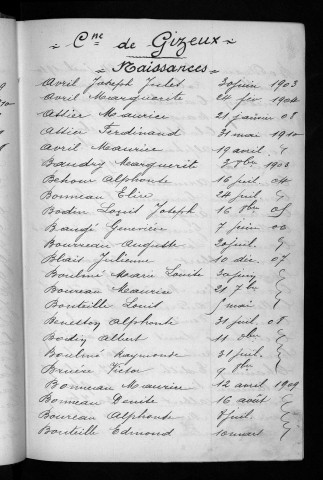 Cne de Gizeux
Naissances
Avril Joseph Jules 30 juin 1903
Avril Marguerite 24 fev 1904
Attier Maurice 21 janvier 08
Attier Ferdinand 31 mai 1910
Avril Maurice 19 avril "
Baudry Marguerite 2 8bre 1903
Behour Alphonse 16 juil. 04
Bonneau Elise 24 juil "
Bodin Louis Joseph 16 8bre 05
Baugé Genevieve 7 juin 06
Bourreau Auguste 30 juil. "
Blais Julienne 10 déc. 07
Boulmé Marie Louise 30 "
Boureau Maurice 21 7bre "
Bouteille Louis mai "
Beneston Alphonse 31 juil. 08
Bodin Albert 11 "
Boulmé Raymonde 31 juil. "
Bruère Victor "
Bonneau Maurice 12 avril 1909
Bonneau Denise 16 août "
Boureau Alphonse juil. "
Bouteille Edmond 10 mars "